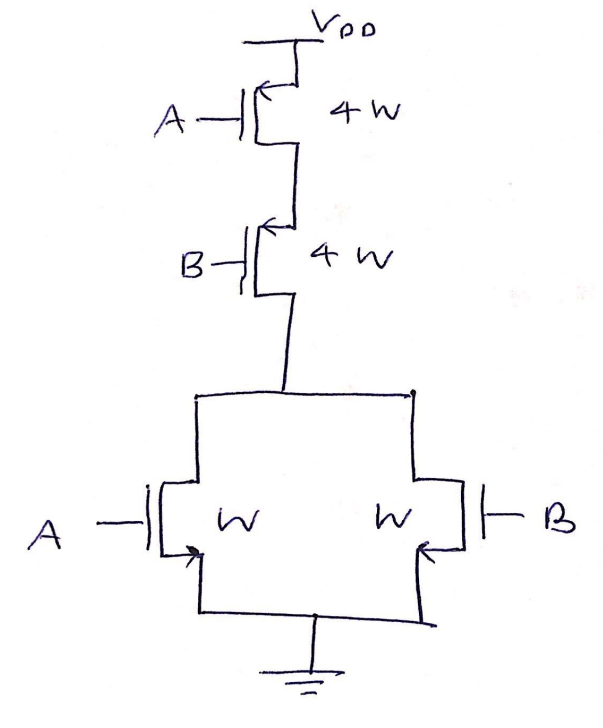 VDD
A 4W
B 4W
A W W B